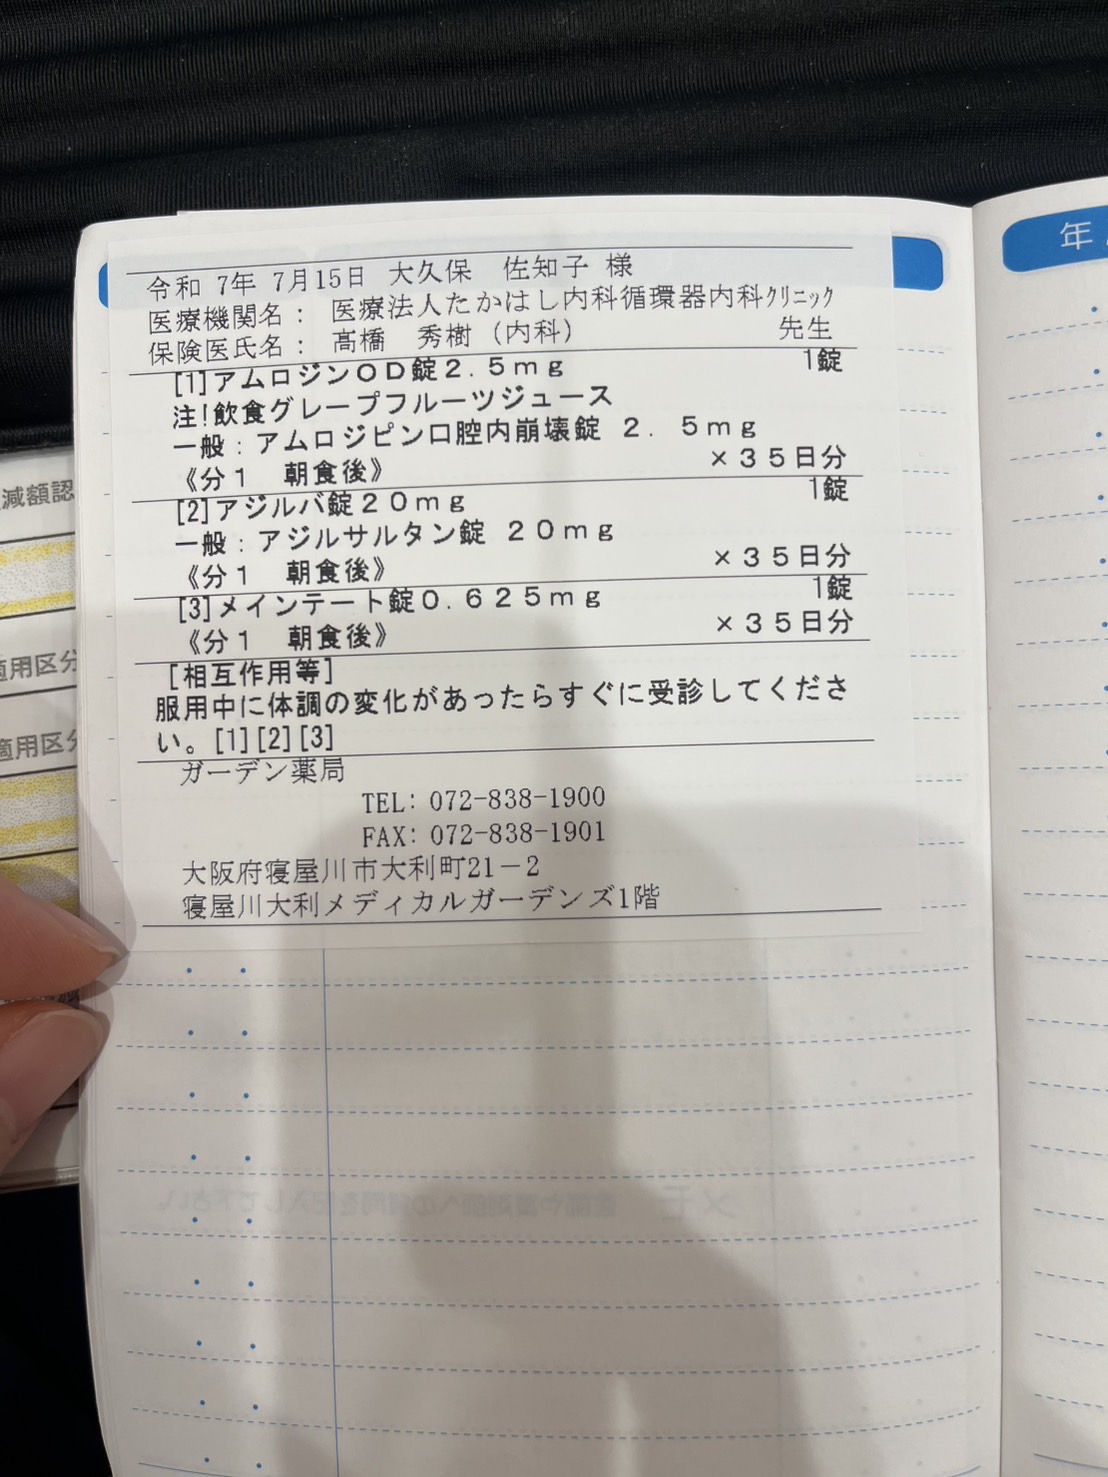 令和 7年 7月15日 大久保 佐知子 様
医療機関名： 医療法人たかはし内科循環器内科ｸﾘﾆｯｸ
保険医氏名： 髙橋 秀樹（内科） 先生
[1]アムロジンＯＤ錠２．５ｍｇ 1錠
注！飲食グレープフルーツジュース
一般：アムロジピン口腔内崩壊錠 ２．５ｍｇ
《分１ 朝食後》 ×３５日分
[2]アジルバ錠２０ｍｇ 1錠
一般：アジルサルタン錠 ２０ｍｇ
《分１ 朝食後》 ×３５日分
[3]メインテート錠０．６２５ｍｇ 1錠
《分１ 朝食後》 ×３５日分
[相互作用等]
服用中に体調の変化があったらすぐに受診してくださ
い。[1][2][3]
ガーデン薬局
TEL: 072-838-1900
FAX: 072-838-1901
大阪府寝屋川市大利町21－2
寝屋川大利メディカルガーデンズ1階
年
減額認
適用区分
適用区分